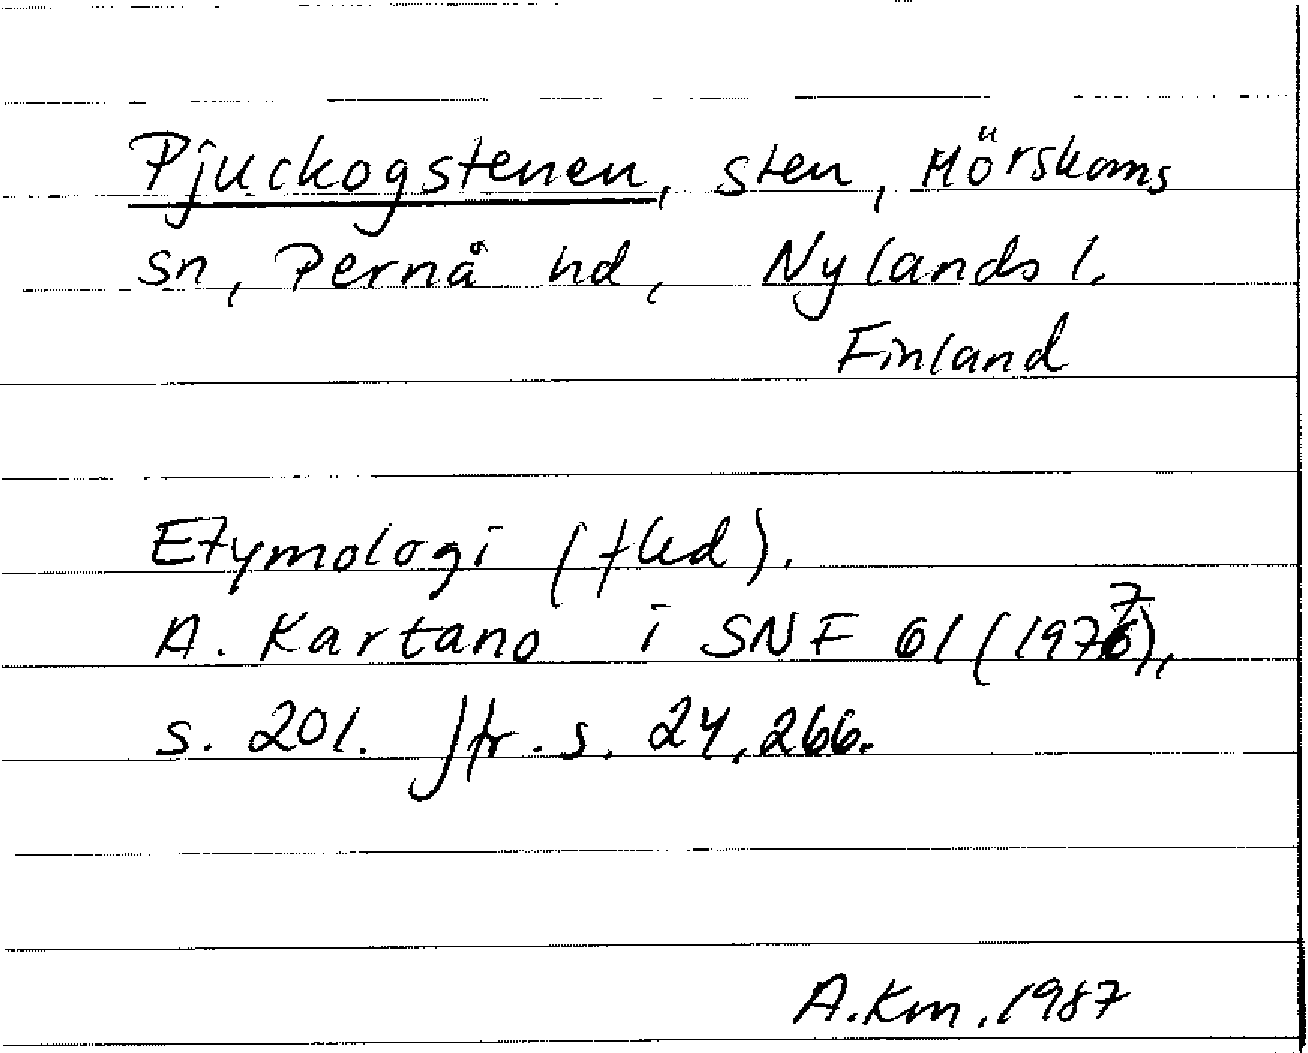 Pjuckogstenen, sten, Mörskoms
sn, Pernå hd, Nylands l.
Finland
Etymologi (fled).
A. Kartano i SNF 61 (1977),
s. 201. Jfr. s. 24, 266.
A.Km. 1987